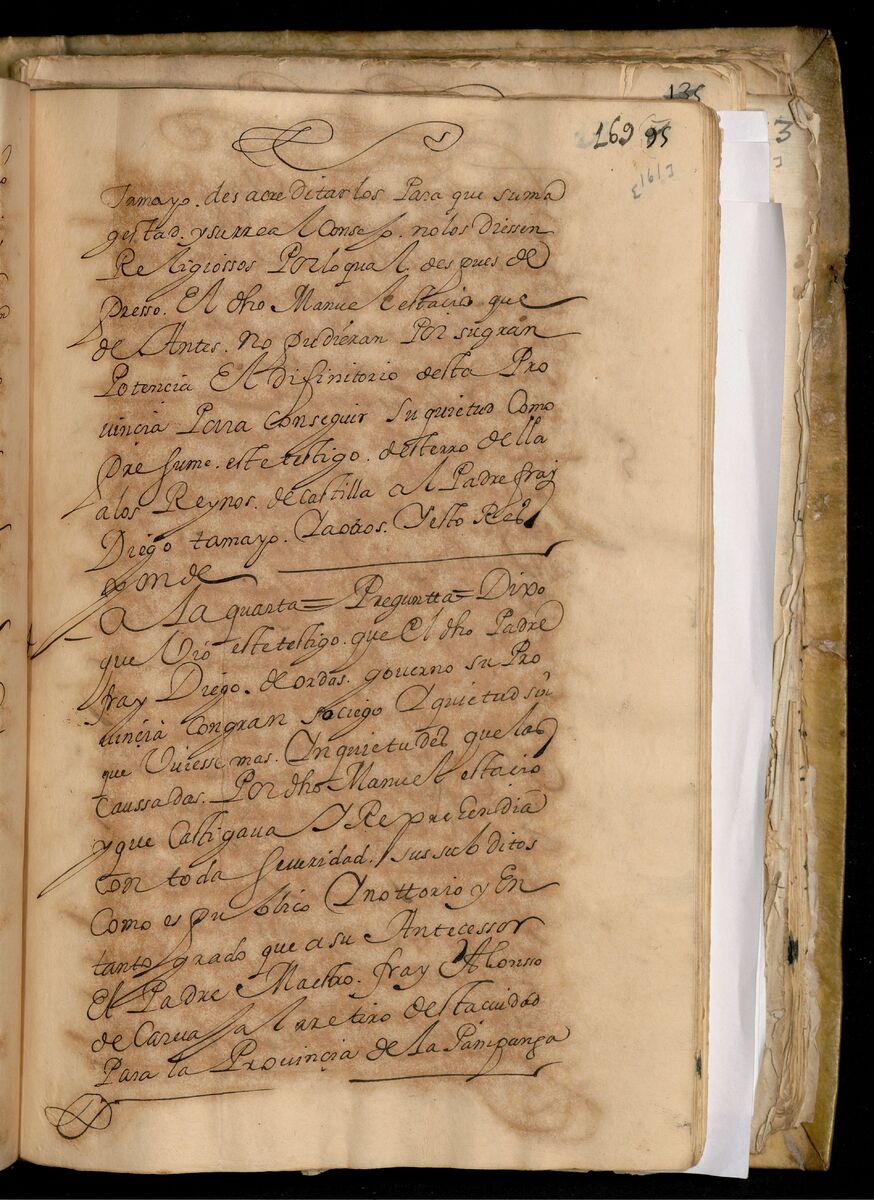 135
169 95
3
[191]3
Tamayo. des acreditarlos Para que suma
gestad. y su rreal Consejo. no los diessen
Religiossos Por lo qual. des pues de
Presso. El dho Manuel estacio que
de Antes. no pudieran Por su gran
Potencia El difinitorio desta Pro
uincia Para conseguir Su quietud Como
Pre sume. este testigo. desterro della
a los Reynos. de Castilla al Padre fray
Diego tamayo. Y a otros. Y esto Res
ponde
A la quarta = Preguntta = Dixo
que Vio este testigo. que El dho Padre
fray Diego. de ordas. gouerno su Pro
uincia Con gran sociego Y quietud sin
que Uuiesse mas. Ynquietudes que las
Caussadas. Por dho Manuel estacio
y que Castigaua Y Reprehendia
con toda Seueridad. sus subditos
Como es publico Y nottorio y En
tanto grado que a su Antecessor
El Padre Maestro. fray Alonsso
de Carua Jal rretiro desta ciudad
Para la Prouincia de la Pampanga